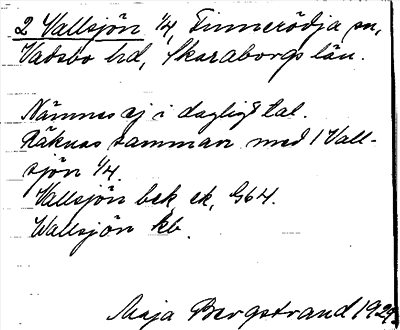 2 Vallsjön 1/4, Tinnerödja sn,
Vadsbo hd, Skaraborgs län.
Nämnes ej i dagligt tal.
Räknas samman med 1 Vall-
sjön 1/4.
Vallsjön bek, ek, G64.
Wallsjön kb.
Maja Bergstrand 1929.